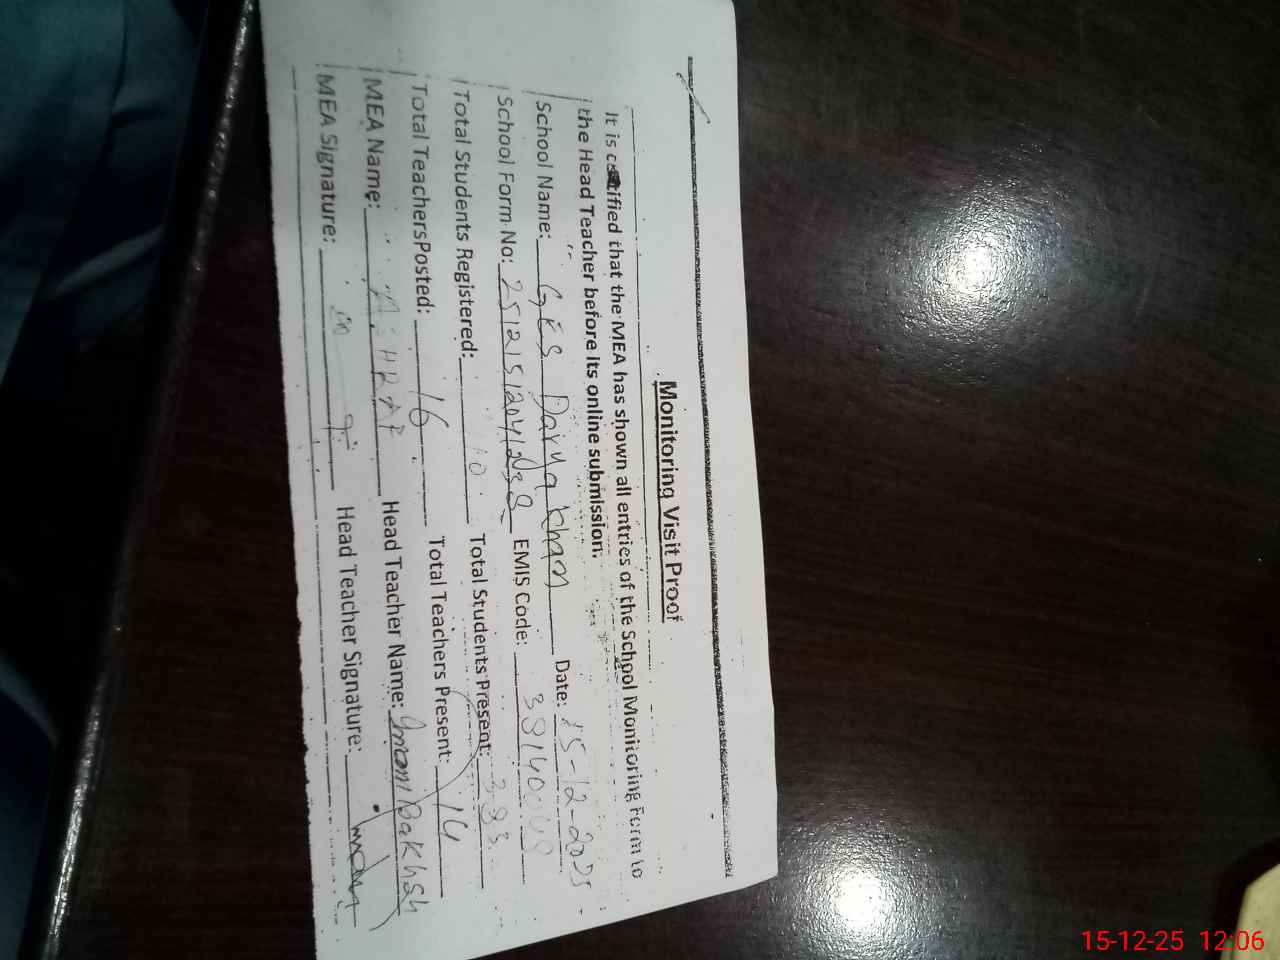 Monitoring Visit Proof
It is certified that the MEA has shown all entries of the School Monitoring Form to
the Head Teacher before its online submission.
School Name: GES Darya Khan Date: 15-12-2025
School Form No: EMIS Code:
Total Students Registered: Total Students Present:
Total Teachers Posted: 16 Total Teachers Present: 14
MEA Name: Head Teacher Name: Imam Bakhsh
MEA Signature: Head Teacher Signature:
15-12-25 12:06